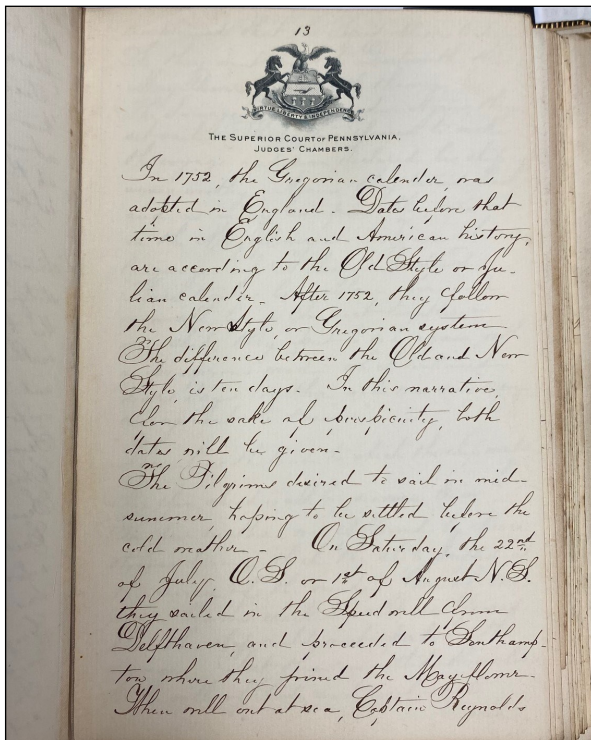 13
VIRTUE LIBERTY & INDEPENDENCE
THE SUPERIOR COURT OF PENNSYLVANIA.
JUDGES' CHAMBERS.
In 1752, the Gregorian calender, was
adopted in England. Dates before that
time in English and American history,
are according to the Old Style or Ju-
lian calender. After 1752, they follow
the New Style, or Gregorian system
The difference between the Old and New
Style, is ten days. In this narrative,
for the sake of perspicuity, both
dates will be given.
The Pilgrims desired to sail in mid-
summer, hoping to be settled before the
cold weather. On Saturday, the 22nd
of July, O.S. or 1st of August N.S.
they sailed in the Speedwell from
Delfthaven, and proceeded to Southamp-
ton where they joined the Mayflower.
When well out at sea, Captain Reynolds